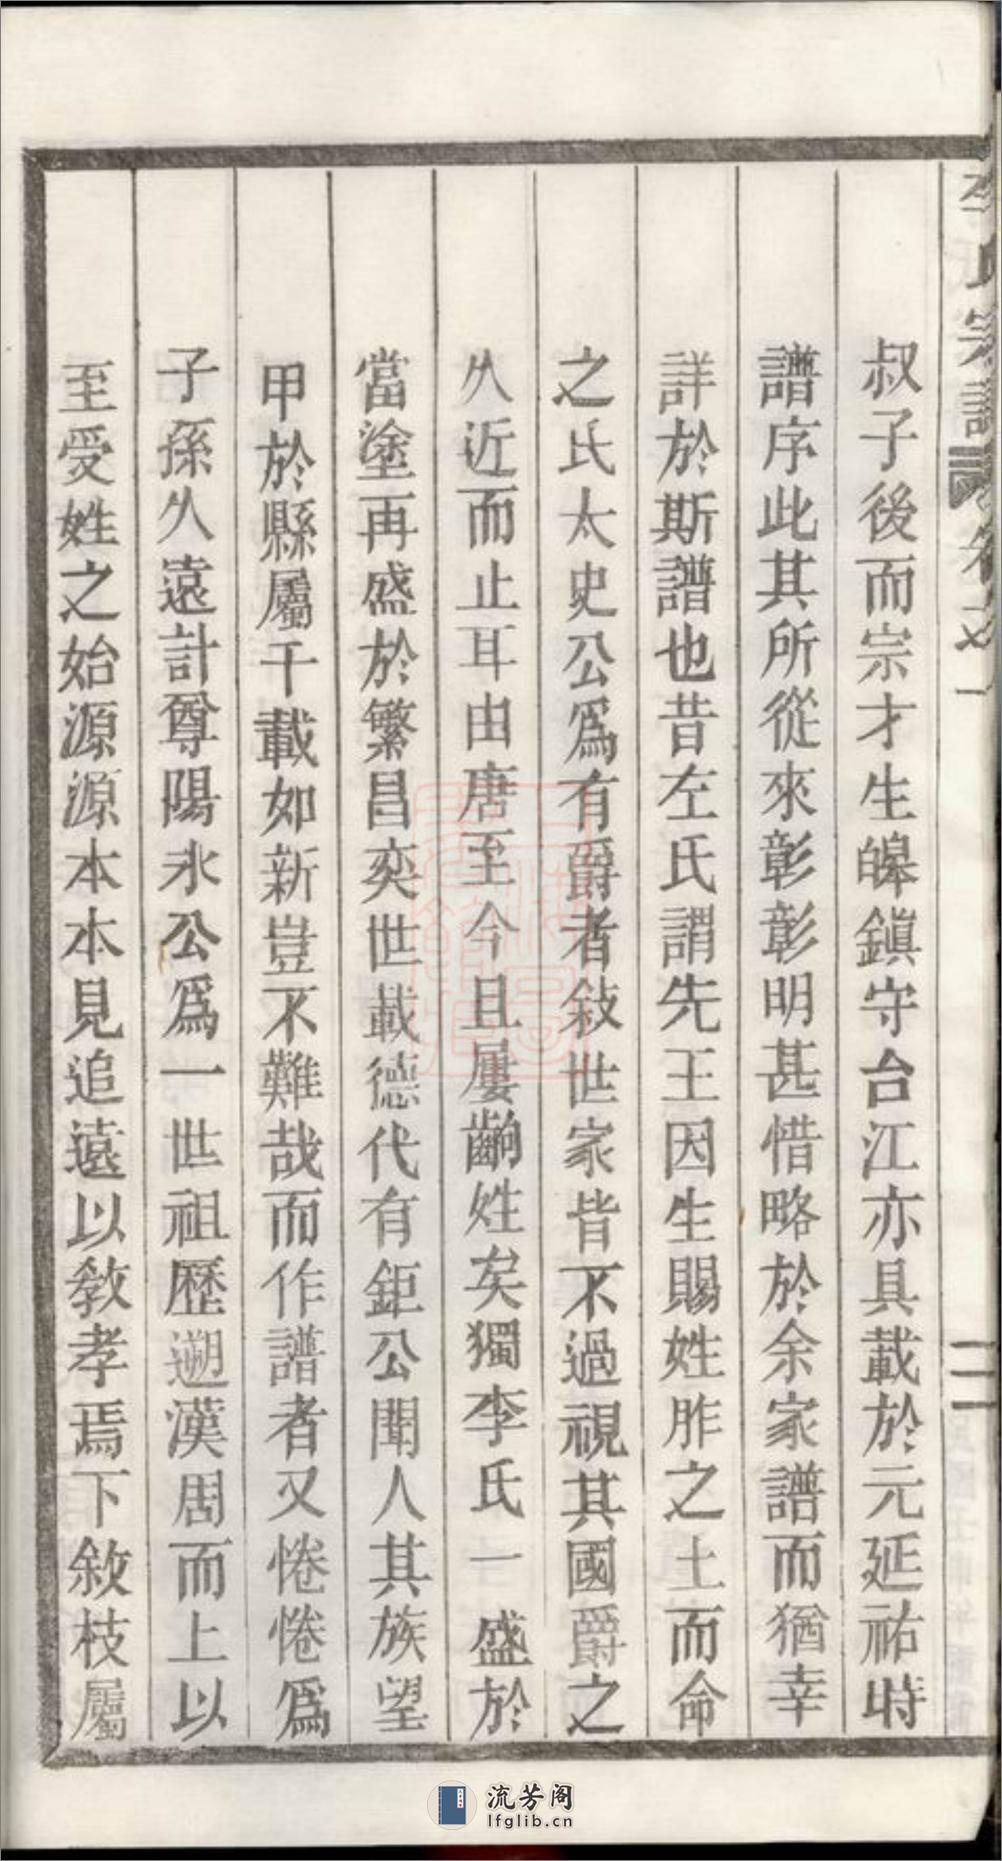 李氏宗譜 卷之一 二
叔子後而宗才生皡鎮守台江亦具載於元延祐時
譜序此其所從來彰彰明甚惜略於余家譜而猶幸
詳於斯譜也昔左氏謂先王因生賜姓胙之土而命
之氏太史公爲有爵者敍世家皆不過視其國爵之
久近而止耳由唐至今且屢齣姓矣獨李氏一盛於
當塗再盛於繁昌奕世載德代有鉅公聞人其族望
甲於縣屬千載如新豈不難哉而作譜者又惓惓爲
子孫久遠計尊陽氷公爲一世祖歷遡漢周而上以
至受姓之始源源本本見追遠以敎孝焉下敘枝屬
流芳阁
lfglib.cn